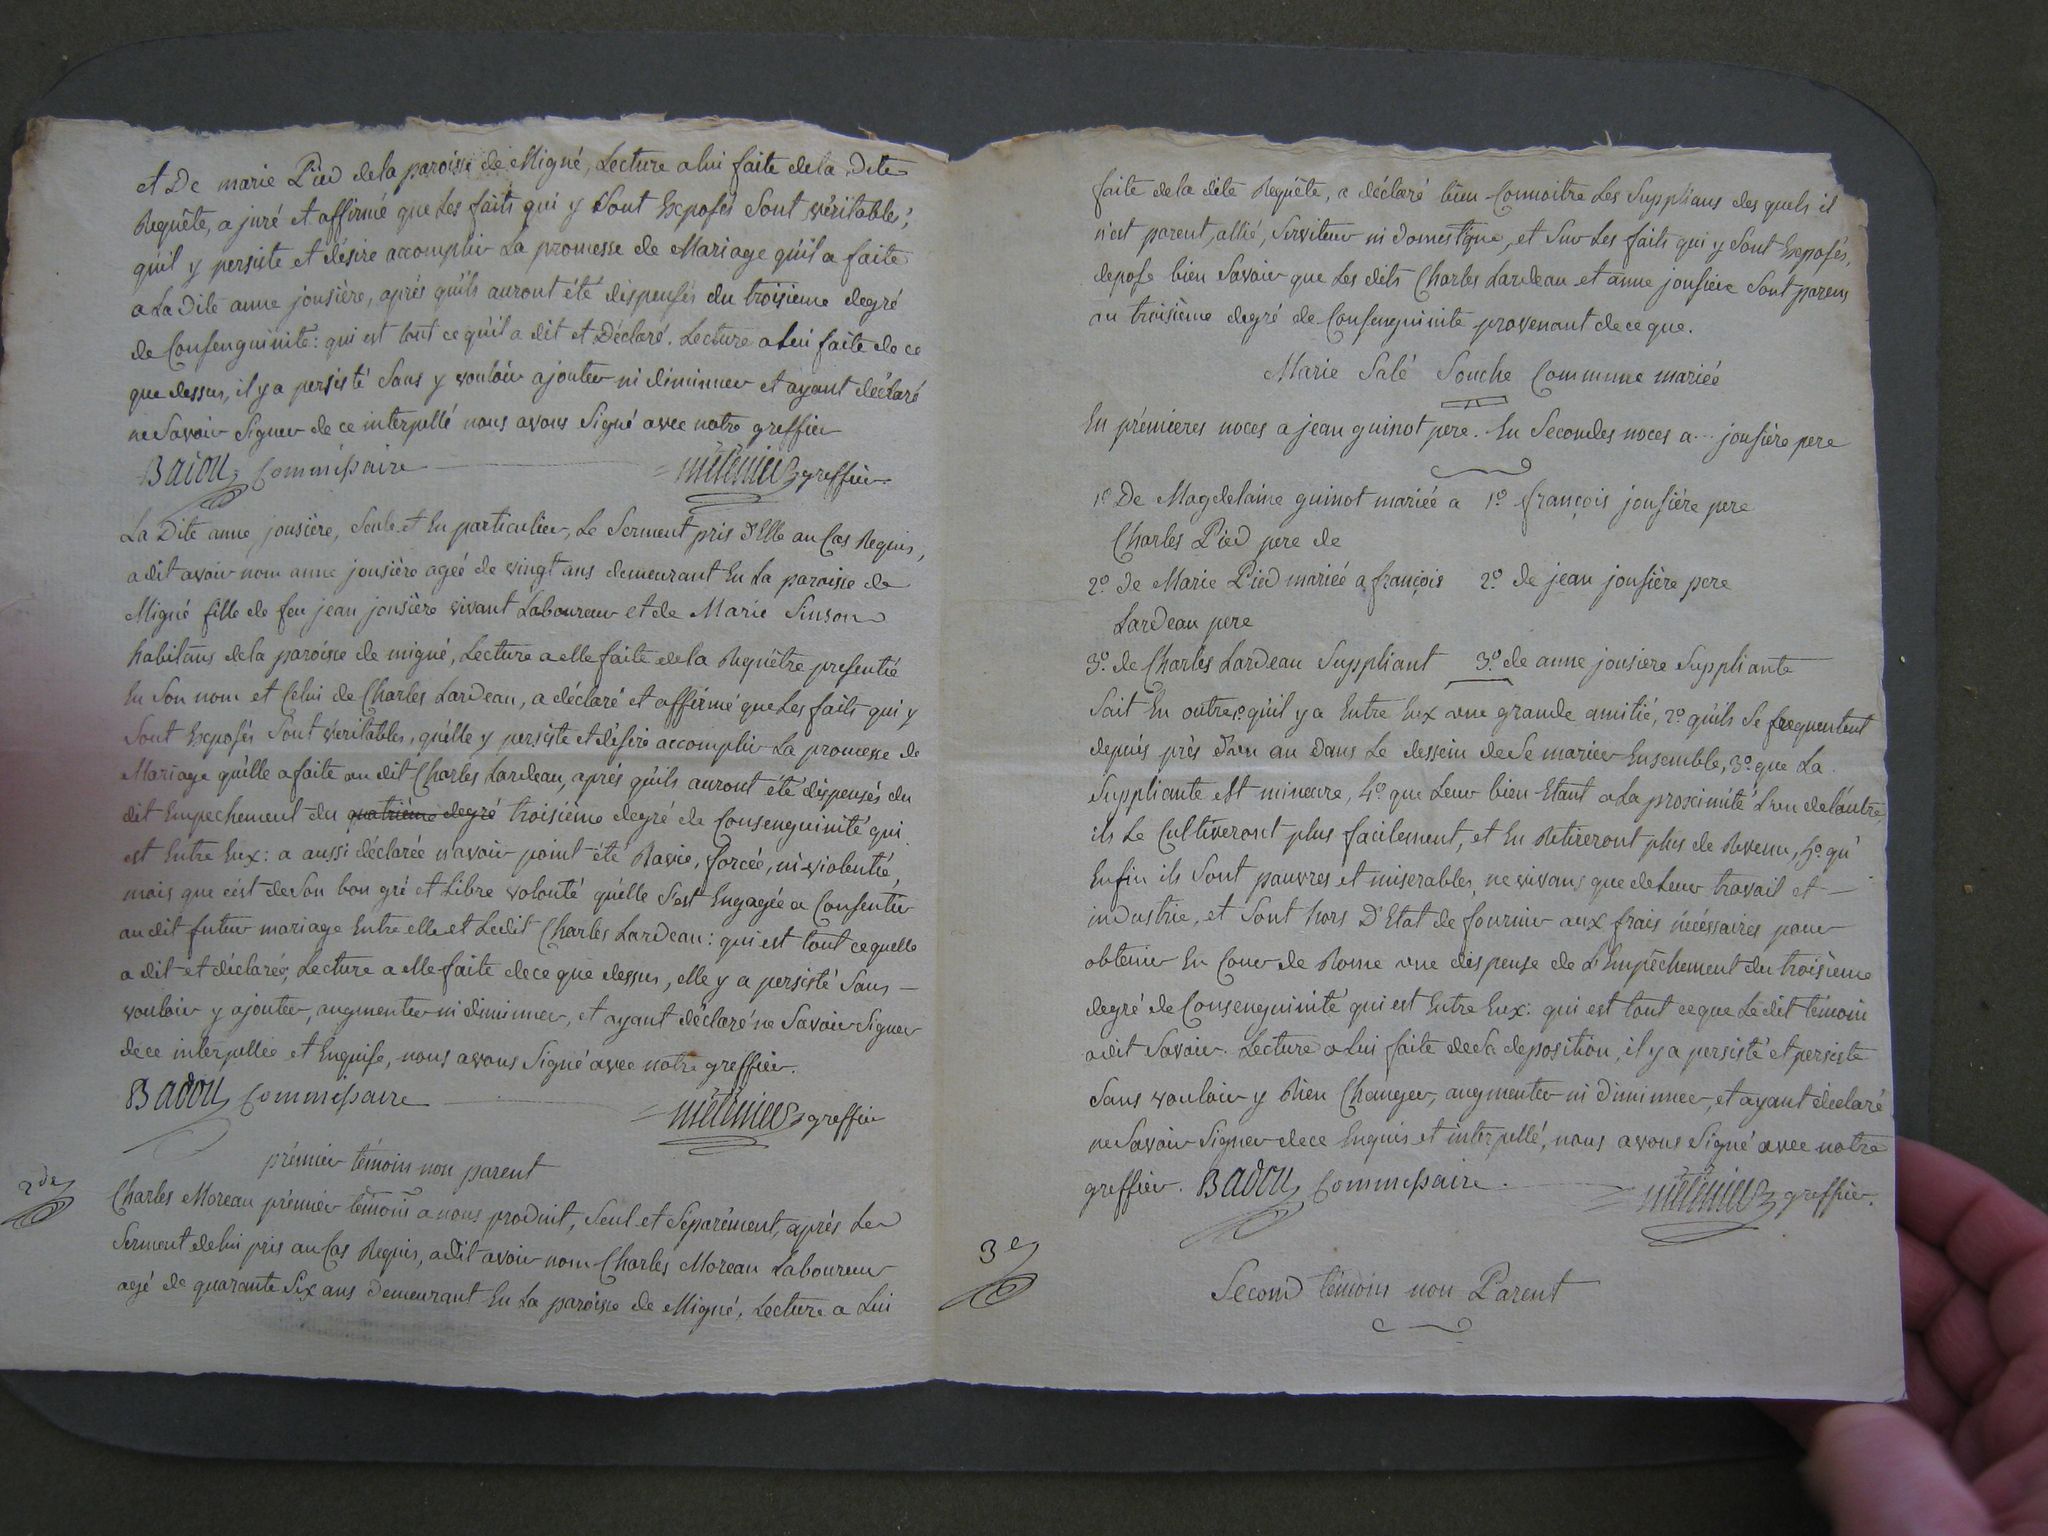 et De marie Pied de la paroisse de Migné, Lecture a lui faite de la Dite
Requête, a juré et affirmé que Les faits qui y Sont Exposés Sont véritables;
qu'il y persiste et désire accomplir La promesse de Mariage qu'il a faite
a La Dite anne jousière, après qu'ils auront été dispensés du troisieme degré
de Consenguinité: qui est tout ce qu'il a dit et Déclaré. Lecture a Lui faite de ce
que dessus, il y a persisté Sans y vouloir ajouter ni diminuer et ayant déclaré
ne Savoir Signer de ce interpellé nous avons Signé avec notre greffier
Badou Commissaire greffier.
La Dite anne jousière, Seule et En particulier, Le Serment pris d'Elle au Cas Requis,
a dit avoir nom anne jousière ageé de vingt ans demeurant En La paroisse de
Migné fille de feu jean jousière vivant Laboureur et de Marie Sinson
habitans de la paroisse de migné, Lecture a elle faite de la Requêtre presentée
En Son nom et Celui de Charles Lardeau, a déclaré et affirmé que Les faits qui y
Sont Exposés Sont véritables, qu'elle y persiste et désire accomplir La promesse de
Mariage qu'elle a faite au dit Charles Lardeau, après qu'ils auront été dispensés du
dit Empechement du quatrième degré troisième degré de Consenguinité qui
est Entre Eux: a aussi déclarée n'avoir point été Ravie, forcée, ni violentée,
mais que c'est de Son bon gré et Libre volonté qu'elle S'est Engagée a Consentir
au dit futur mariage Entre elle et Ledit Charles Lardeau: qui est tout ce quelle
a dit et déclaré; Lecture a elle faite de ce que dessus, elle y a persisté Sans
vouloir y ajouter, augmenter ni diminuer, et ayant déclaré ne Savoir Signer
de ce interpellée et Enquise, nous avons Signé avec notre greffier.
Badou Commissaire greffier
prémier témoin non parent
2de
Charles Moreau prémier témoin a nous produit, Seul et Séparément, après Le
Serment de lui pris au Cas Requis, a dit avoir nom Charles Moreau Laboureur
agé de quarante Six ans Demeurant En La paroisse de Migné, Lecture a Lui
faite de la dite Requête, a déclaré bien Connoitre Les Supplians des quels il
n'est parent, allié, Serviteur ni domestique, et Sur Les faits qui y Sont Exposés,
depose bien Savoir que Les dits Charles Lardeau et anne jousière Sont parens
au troisième degré de Consenguinité provenant de ce que.
Marie Salé Souche Commune mariée
En prémieres noces a jean guinot pere. En Secondes noces a... jousière pere
1º De Magdelaine guinot mariée a 1º françois jousière pere
Charles Pied pere de
2º de Marie Pied mariée a françois 2º de jean jousière pere
Lardeau pere
3º de Charles Lardeau Suppliant 3º de anne jousiere Suppliante
Sait En outre qu'il y a Entre Eux une grande amitié, 2º qu'ils Se frequentent
depuis près d'un an dans Le dessein de Se marier Ensemble, 3º que La
Suppliante est mineure, 4º que Leur bien Etant a La proximité L'un de L'autre,
ils Le Cultiveront plus facilement, et En Retireront plus de Revenu, 5º qu'
Enfin ils Sont pauvres et miserables, ne vivans que de Leur travail et
industrie, et Sont hors D'Etat de fournir aux frais nécessaires pour
obtenir En Cour de Rome une dispense de L'Empêchement du troisième
degré de Consenguinité qui est Entre Eux: qui est tout ce que Le dit témoin
a dit Savoir. Lecture a Lui faite de Sa deposition, il y a persisté et persiste
Sans vouloir y Rien Changer, augmenter ni Diminuer, et ayant déclaré
ne Savoir Signer de ce Enquis et interpellé, nous avons Signé avec notre
greffier. Badou Commissaire. greffier.
3e
Second témoin non Parent